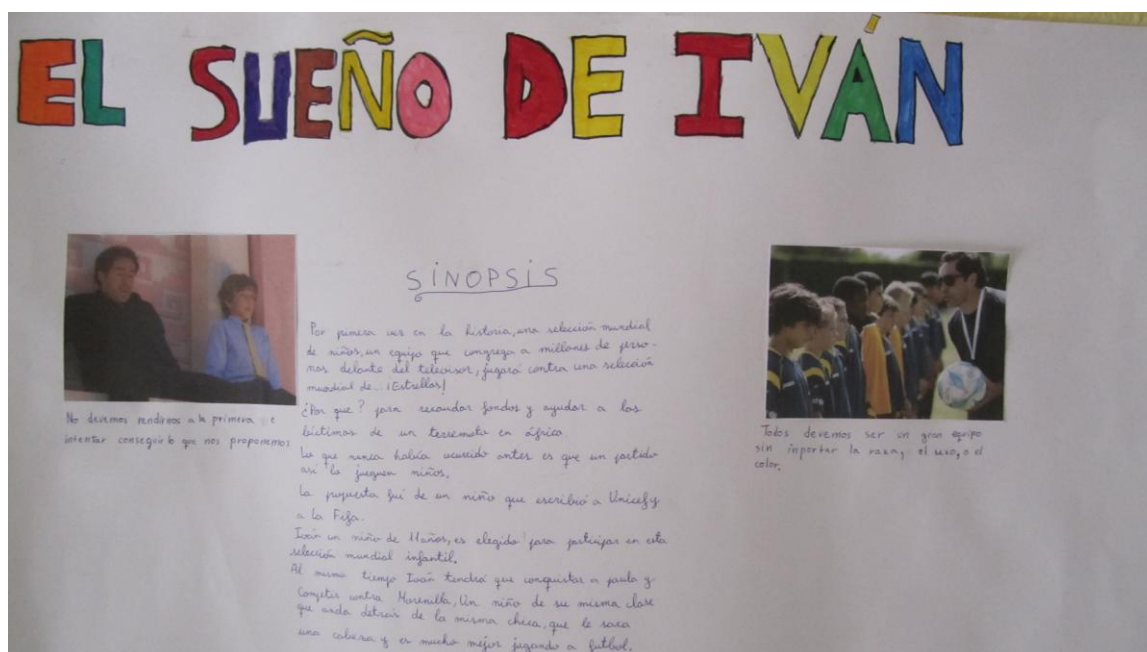 EL SUEÑO DE IVÁN
SINOPSIS
Por primera vez en la historia, una selección mundial
de niños, un equipo que congrega a millones de perso-
nas delante del televisor, jugará contra una selección
mundial de... ¡Estrellas!
¿Por que? para recaudar fondos y ayudar a las
bíctimas de un terremoto en áfrica.
Lo que nunca había ocurrido antes es que un partido
así lo jueguen niños.
La propuesta fué de un niño que escribió a Unicef y
a la Fifa.
Iván un niño de 11 años, es elegido para participar en esta
selección mundial infantil.
Al mismo tiempo Iván tendrá que conquistar a paula y
Competir contra Morenilla, Un niño de su misma clase
que anda detrás de la misma chica, que le saca
una cabeza y es mucho mejor jugando a futbol.
No devemos rendirnos a la primera e
intentar conseguir lo que nos proponemos
Todos devemos ser un gran equipo
sin inportar la raza, el sexo, o el
color.